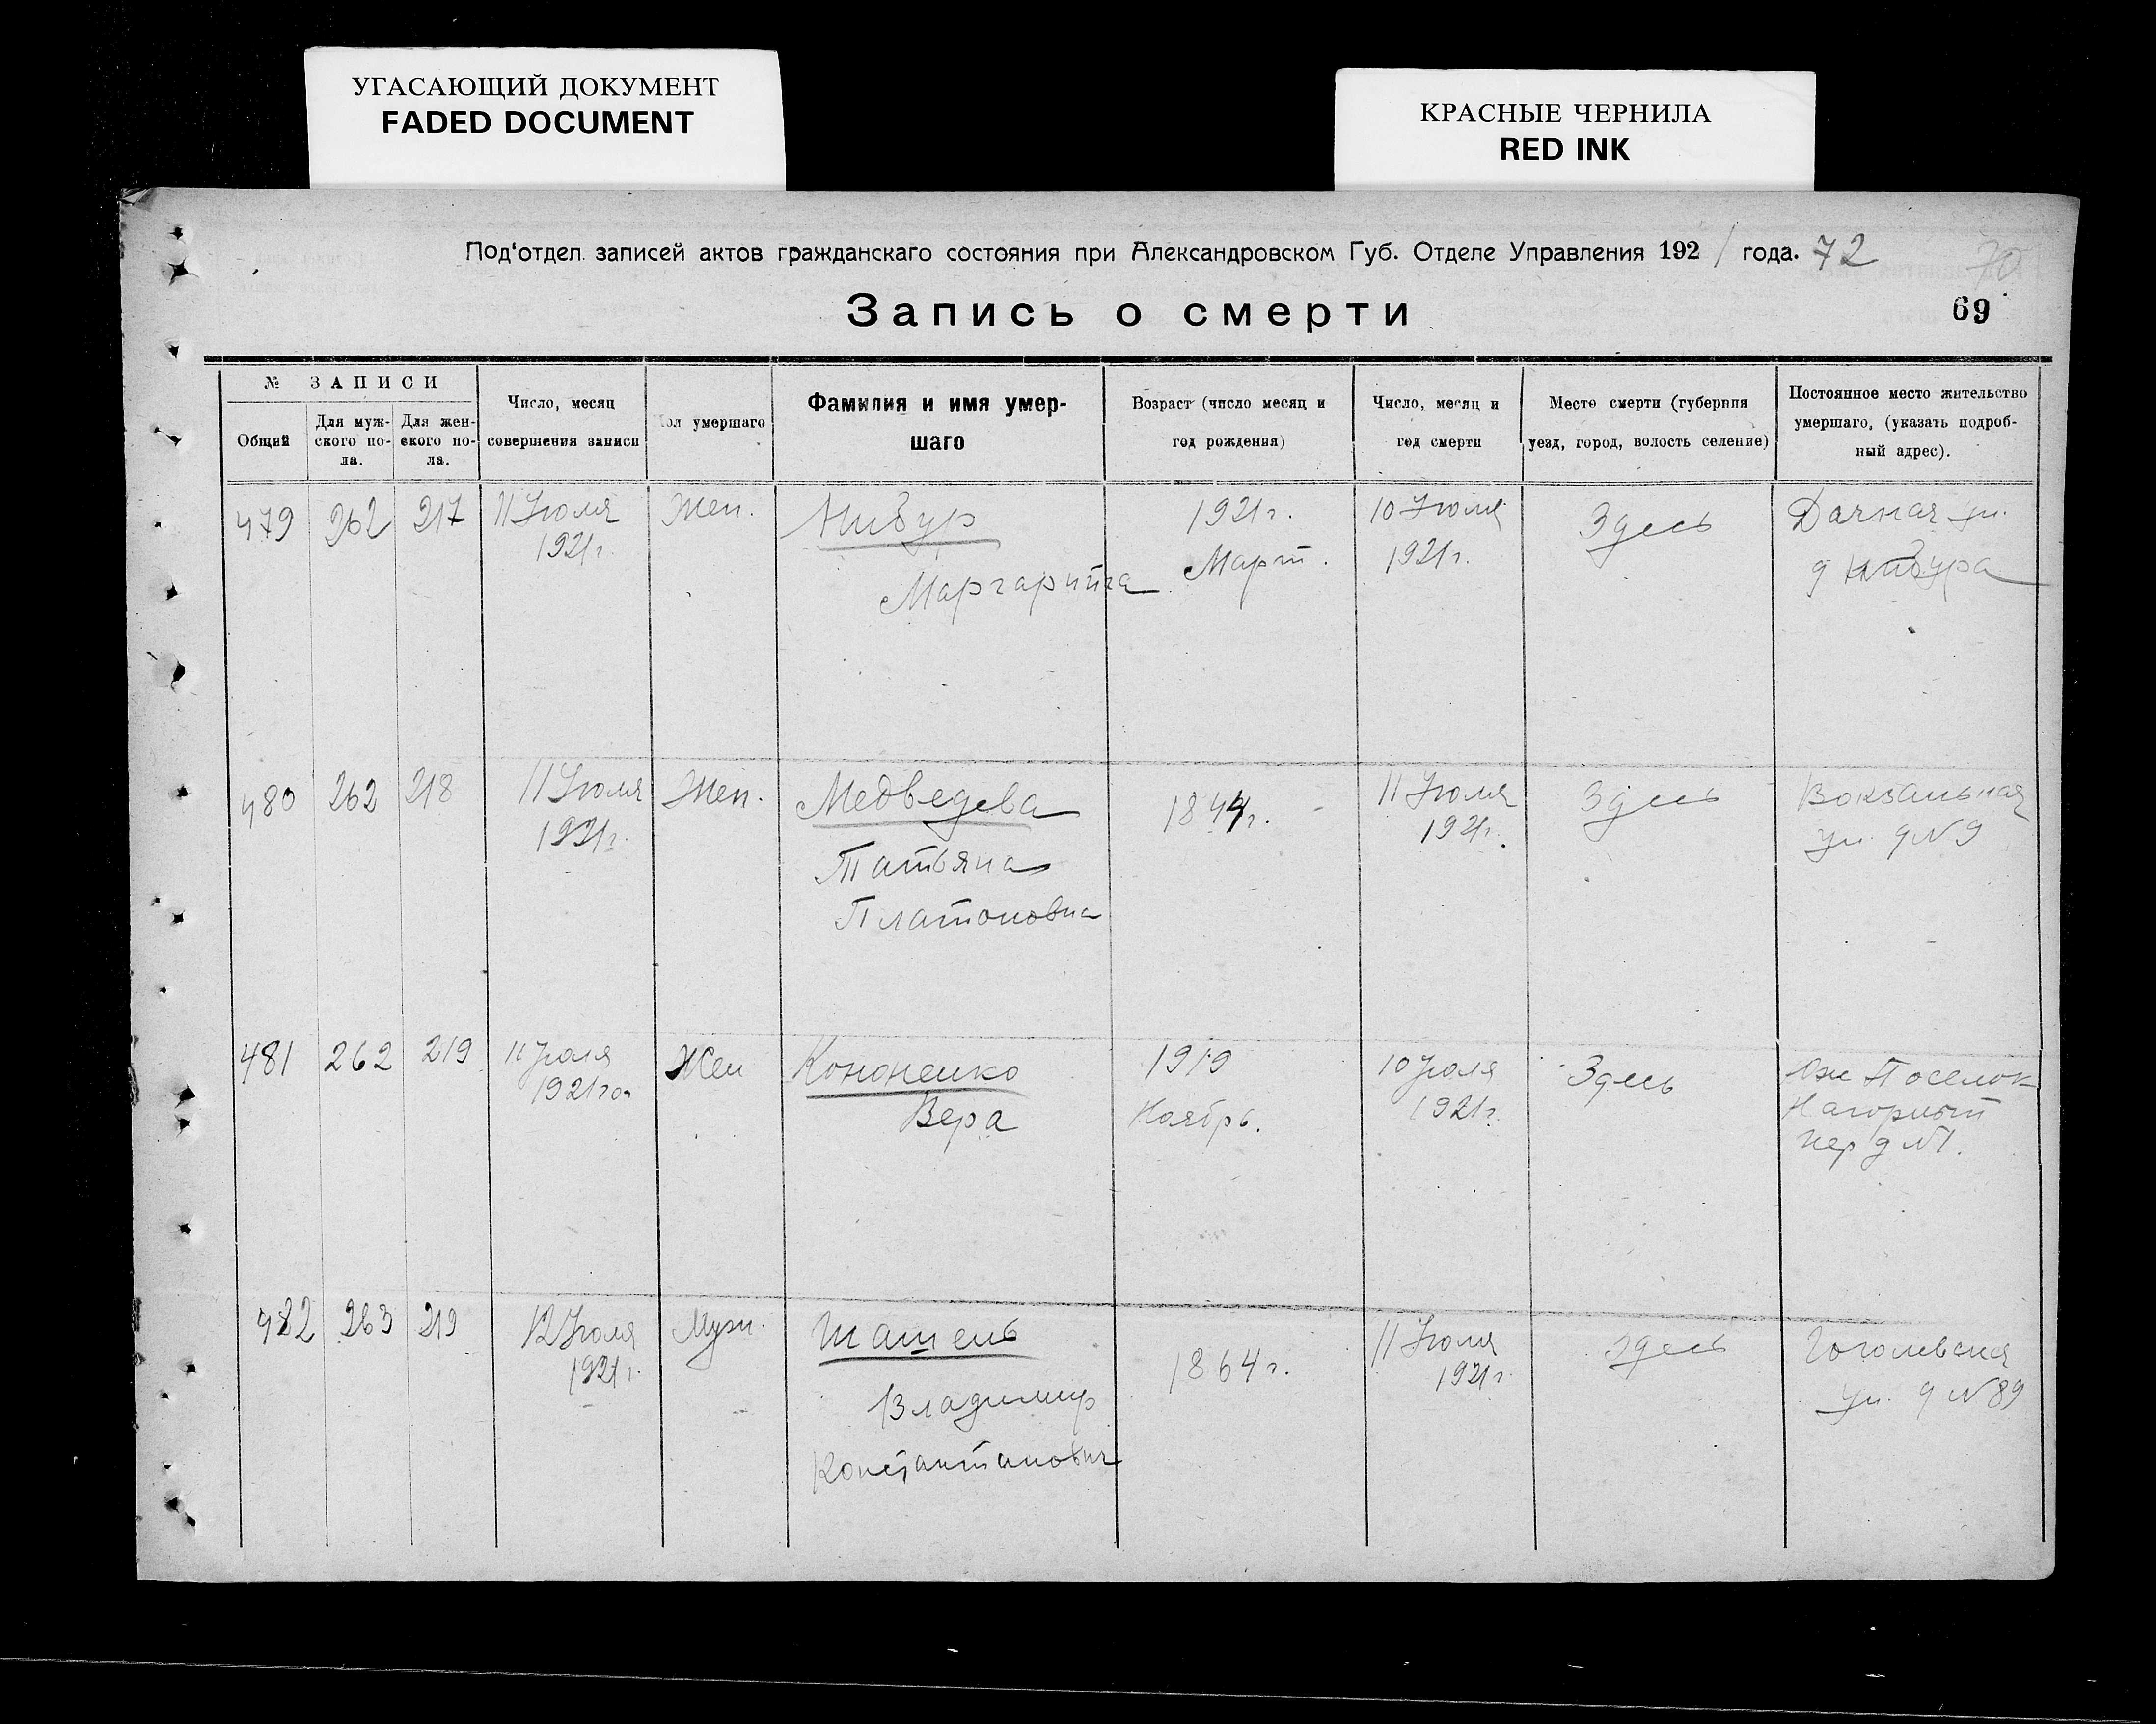 УГАСАЮЩИЙ ДОКУМЕНТ
FADED DOCUMENT
КРАСНЫЕ ЧЕРНИЛА
RED INK
Под'отдел записей актов гражданскаго состояния при Александровском Губ. Отделе Управления 1921 года. 72
70
Запись о смерти
69
№ ЗАПИСИ
Общий
Для муж-
ского по-
ла.
Для жен-
ского по-
ла.
Число, месяц
совершения записи
Пол умершаго
Фамилия и имя умер-
шаго
Возраст (число месяц и
год рождения)
Число, месяц и
год смерти
Место смерти (губерния
уезд, город, волость селение)
Постоянное место жительство
умершаго, (указать подроб-
ный адрес).
479 262 217 11 Июля Жен.
1921г.
Маргарита
1921г.
Март.
10 Июля
1921г.
Здесь
Дачная ул.
480 262 218 11 Июля Жен.
1921г.
Медведева
Татьяна
Платоновна
1844г.
11 Июля
1921г.
Здесь
Вокзальная
ул. д №9
481 262 219 11 Июля Жен
1921го
Кононенко
Вера
1919
Ноябрь.
10 Июля
1921г.
Здесь
Поселок
Нагорный
пер д №1.
482 263 219 12 Июля Муж.
1921г.
Шатель
Владимир
Константинович
1864г.
11 Июля
1921г.
Здесь
Гоголевская
ул. д №89